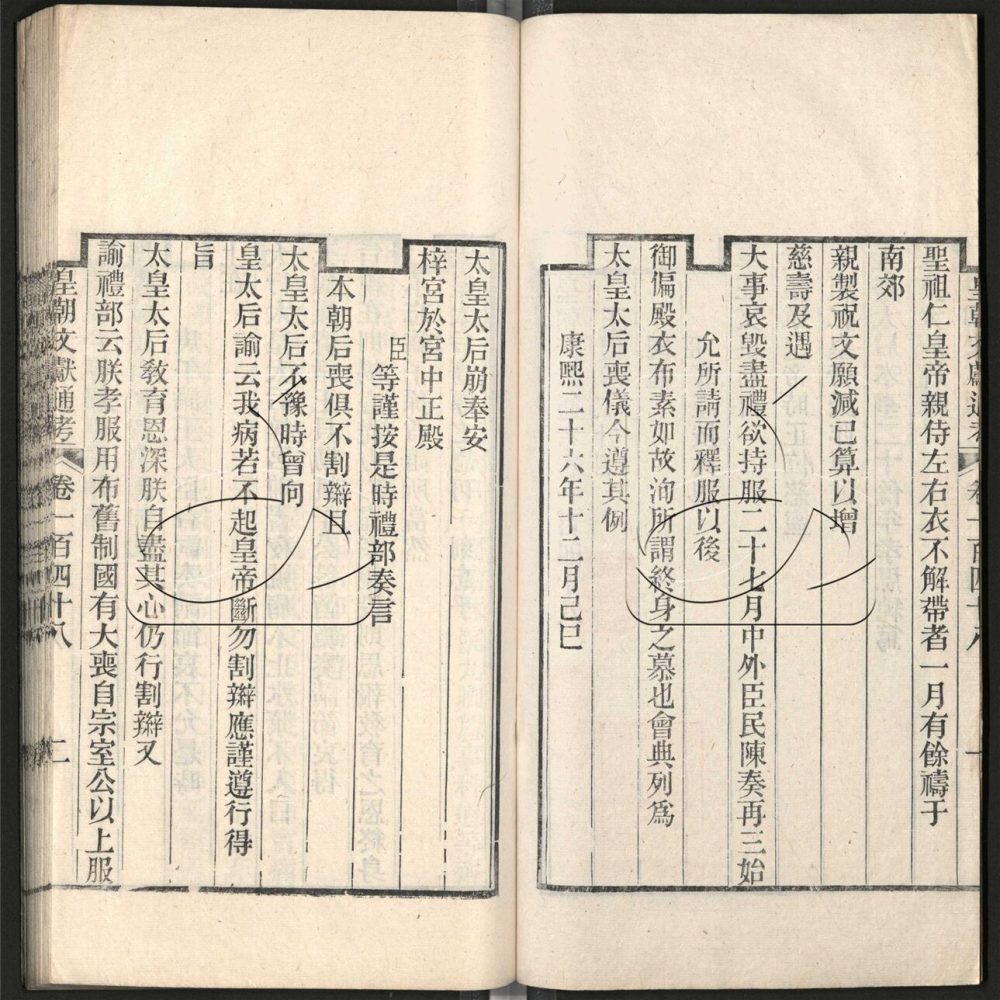 聖祖仁皇帝親侍左右衣不解帶者一月有餘禱于
南郊
親製祝文願減己算以增
慈壽及遇
大事哀毀盡禮欲持服二十七月中外臣民陳奏再三始
允所請而釋服以後
御偏殿衣布素如故洵所謂終身之慕也會典列爲
太皇太后喪儀今遵其例
康熙二十六年十二月己巳
太皇太后崩奉安
梓宮於宮中正殿
臣等謹按是時禮部奏言
本朝后喪俱不割辮且
太皇太后不豫時曾向
皇太后諭云我病若不起皇帝斷勿割辮應謹遵行得
旨
太皇太后敎育恩深朕自盡其心仍行割辮又
諭禮部云朕孝服用布舊制國有大喪自宗室公以上服
皇朝文獻通考 卷一百四十八 二